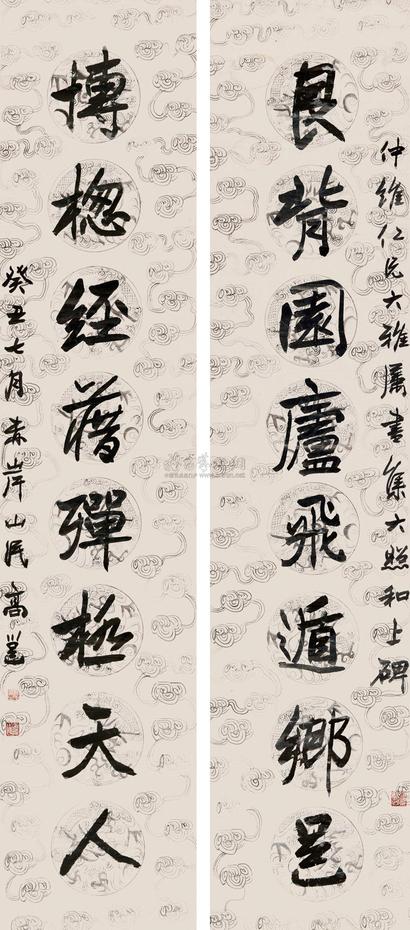 仲維仁兄大雅屬書集大照和上碑
艮背園廬飛遁鄉邑
博揔經藉彈極天人
癸丑七月赤岸山民高邕